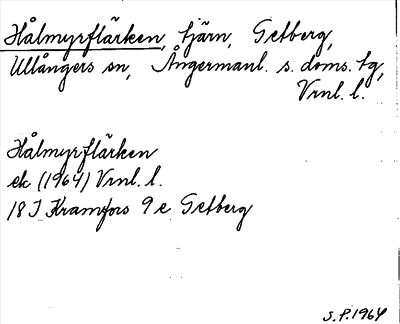 Hålmyrflärken, tjärn, Getberg,
Ullångers sn, Ångermanl. s. doms. tg,
Vrnl. l.
Hålmyrflärken
ek (1964) Vrnl. l.
18 J Kramfors 9 e Getberg
S.P. 1964